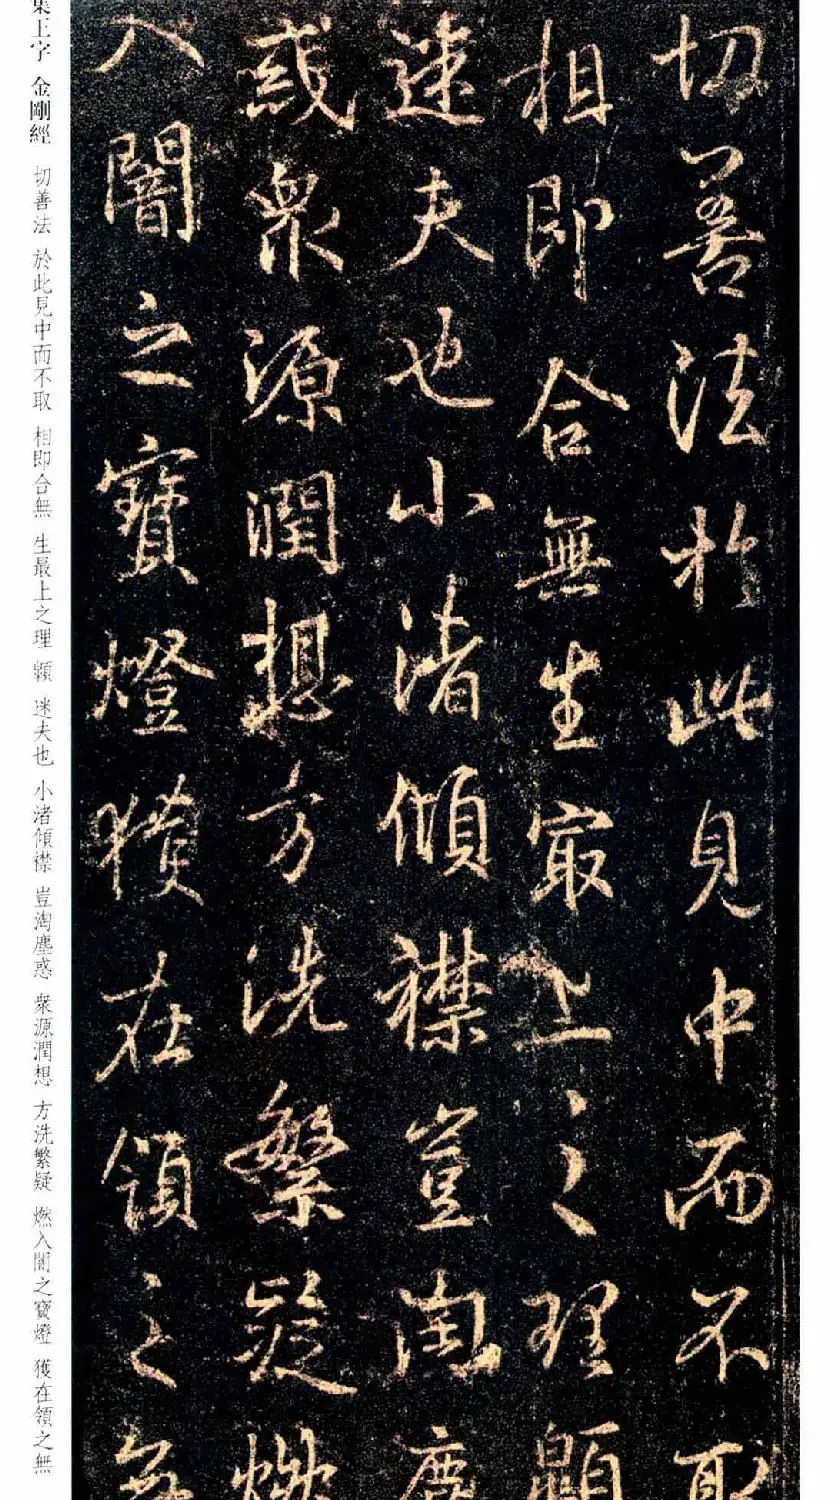 切善法於此見中而不取
相即合無生最上之理顯
迷夫也小渚傾襟豈淘塵
惑衆源潤想方洗繁疑燃
入闇之寶燈獲在領之無
集王字 金剛經 切善法 於此見中而不取 相即合無 生最上之理 顯 迷夫也 小渚傾襟 豈淘塵惑 衆源潤想 方洗繁疑 燃入闇之寶燈 獲在領之無